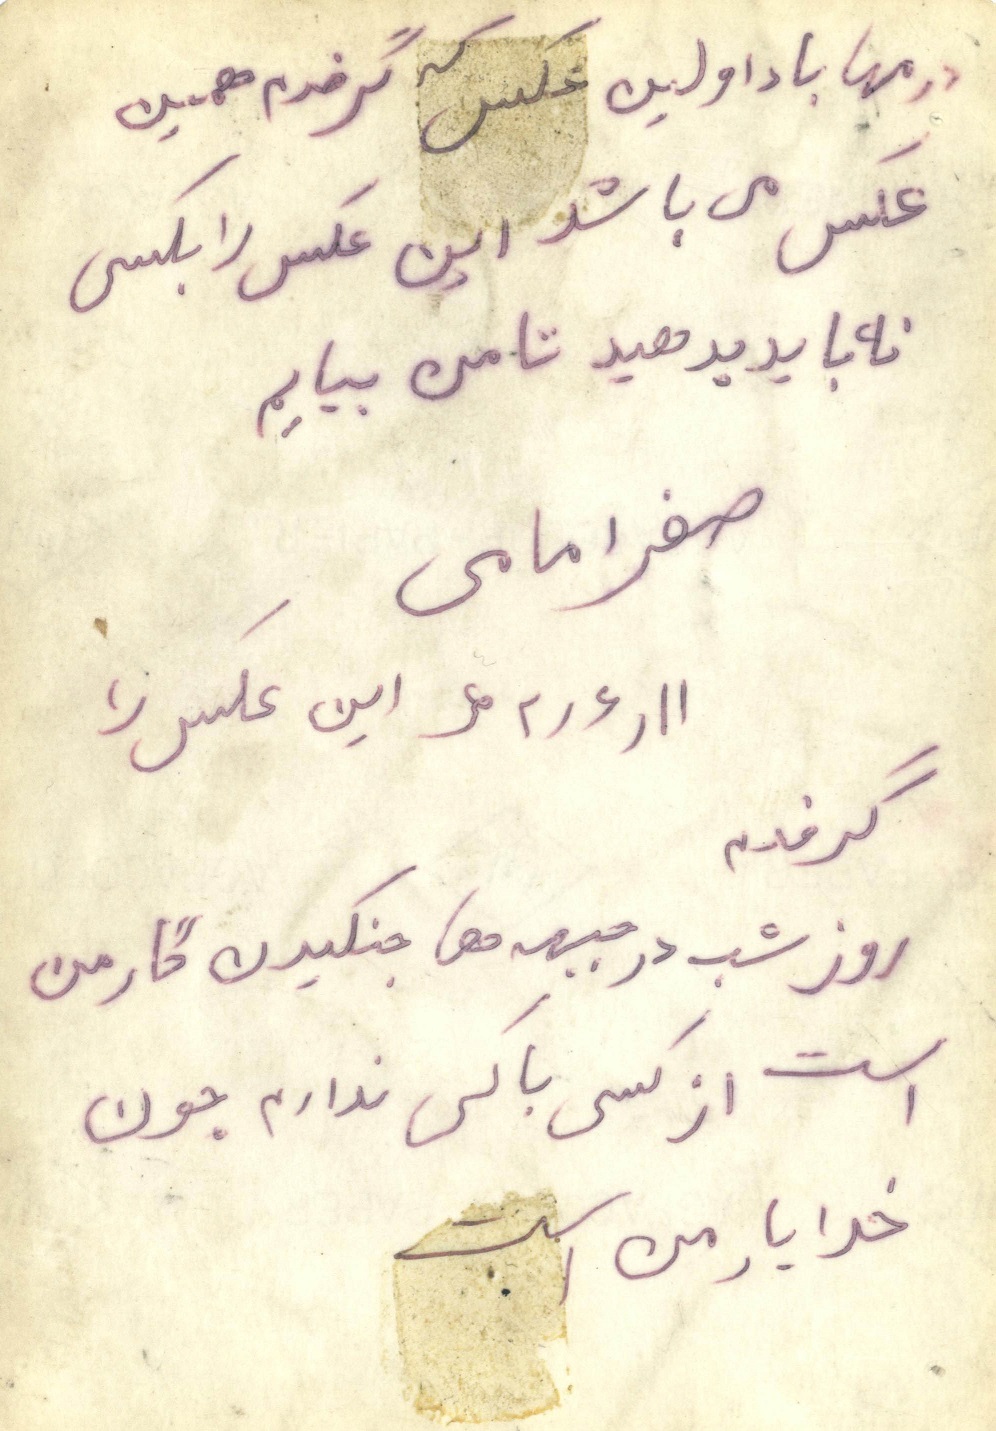 در مهاباد اولین عکس که گرفدم همین
عکس می باشد این عکس را بکسی
نه باید بدهید تا من بیایم
صفر امامی
این عکس را
گرفدم
روز شب در جبهه ها جنگیدن کار من
است از کسی باکی ندارم چون
خدا یار من است